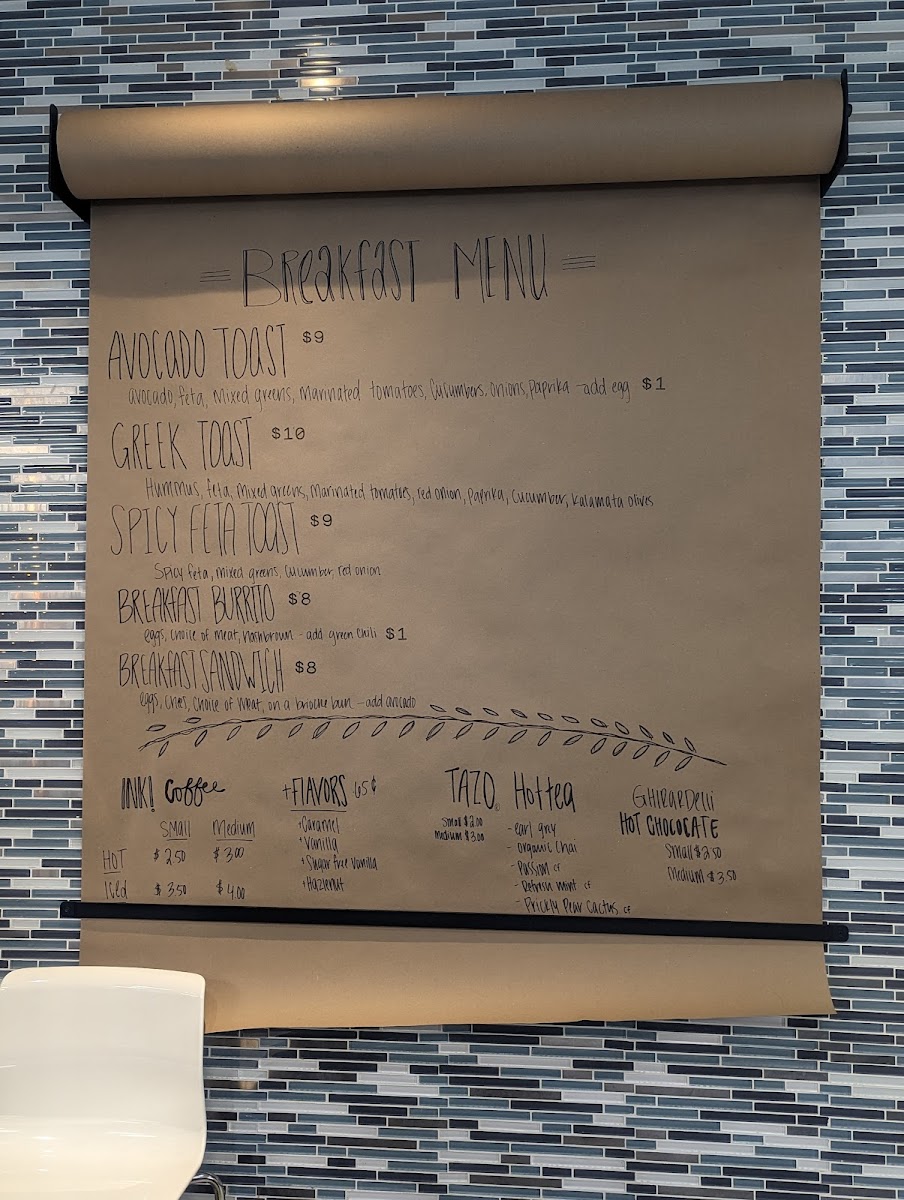 Breakfast MENU
AVOCADO TOAST $9
avocado, feta, mixed greens, marinated tomatoes, cucumbers, onions, paprika - add egg $1
GREEK TOAST $10
Hummus, feta, mixed greens, marinated tomatoes, red onion, paprika, cucumber, kalamata olives
SPICY FETA TOAST $9
Spicy feta, mixed greens, cucumber, red onion
BREAKFAST BURRITO $8
eggs, choice of meat, hashbrown - add green chili $1
BREAKFAST SANDWICH $8
eggs, choice of meat, on a brioche bun - add avocado
INK! Coffee
Small Medium
HOT $2.50 $3.00
Iced $3.50 $4.00
+FLAVORS 65¢
+Caramel
+Vanilla
+Sugar free Vanilla
+Hazlenut
TAZO Hot tea
Small $2.00
Medium $3.00
- earl grey
- organic Chai
- Passion CF
- Refresh mint CF
- Prickly Pear Cactus CF
GHIRARDELLI
HOT CHOCOCATE
Small $2.50
Medium $3.50